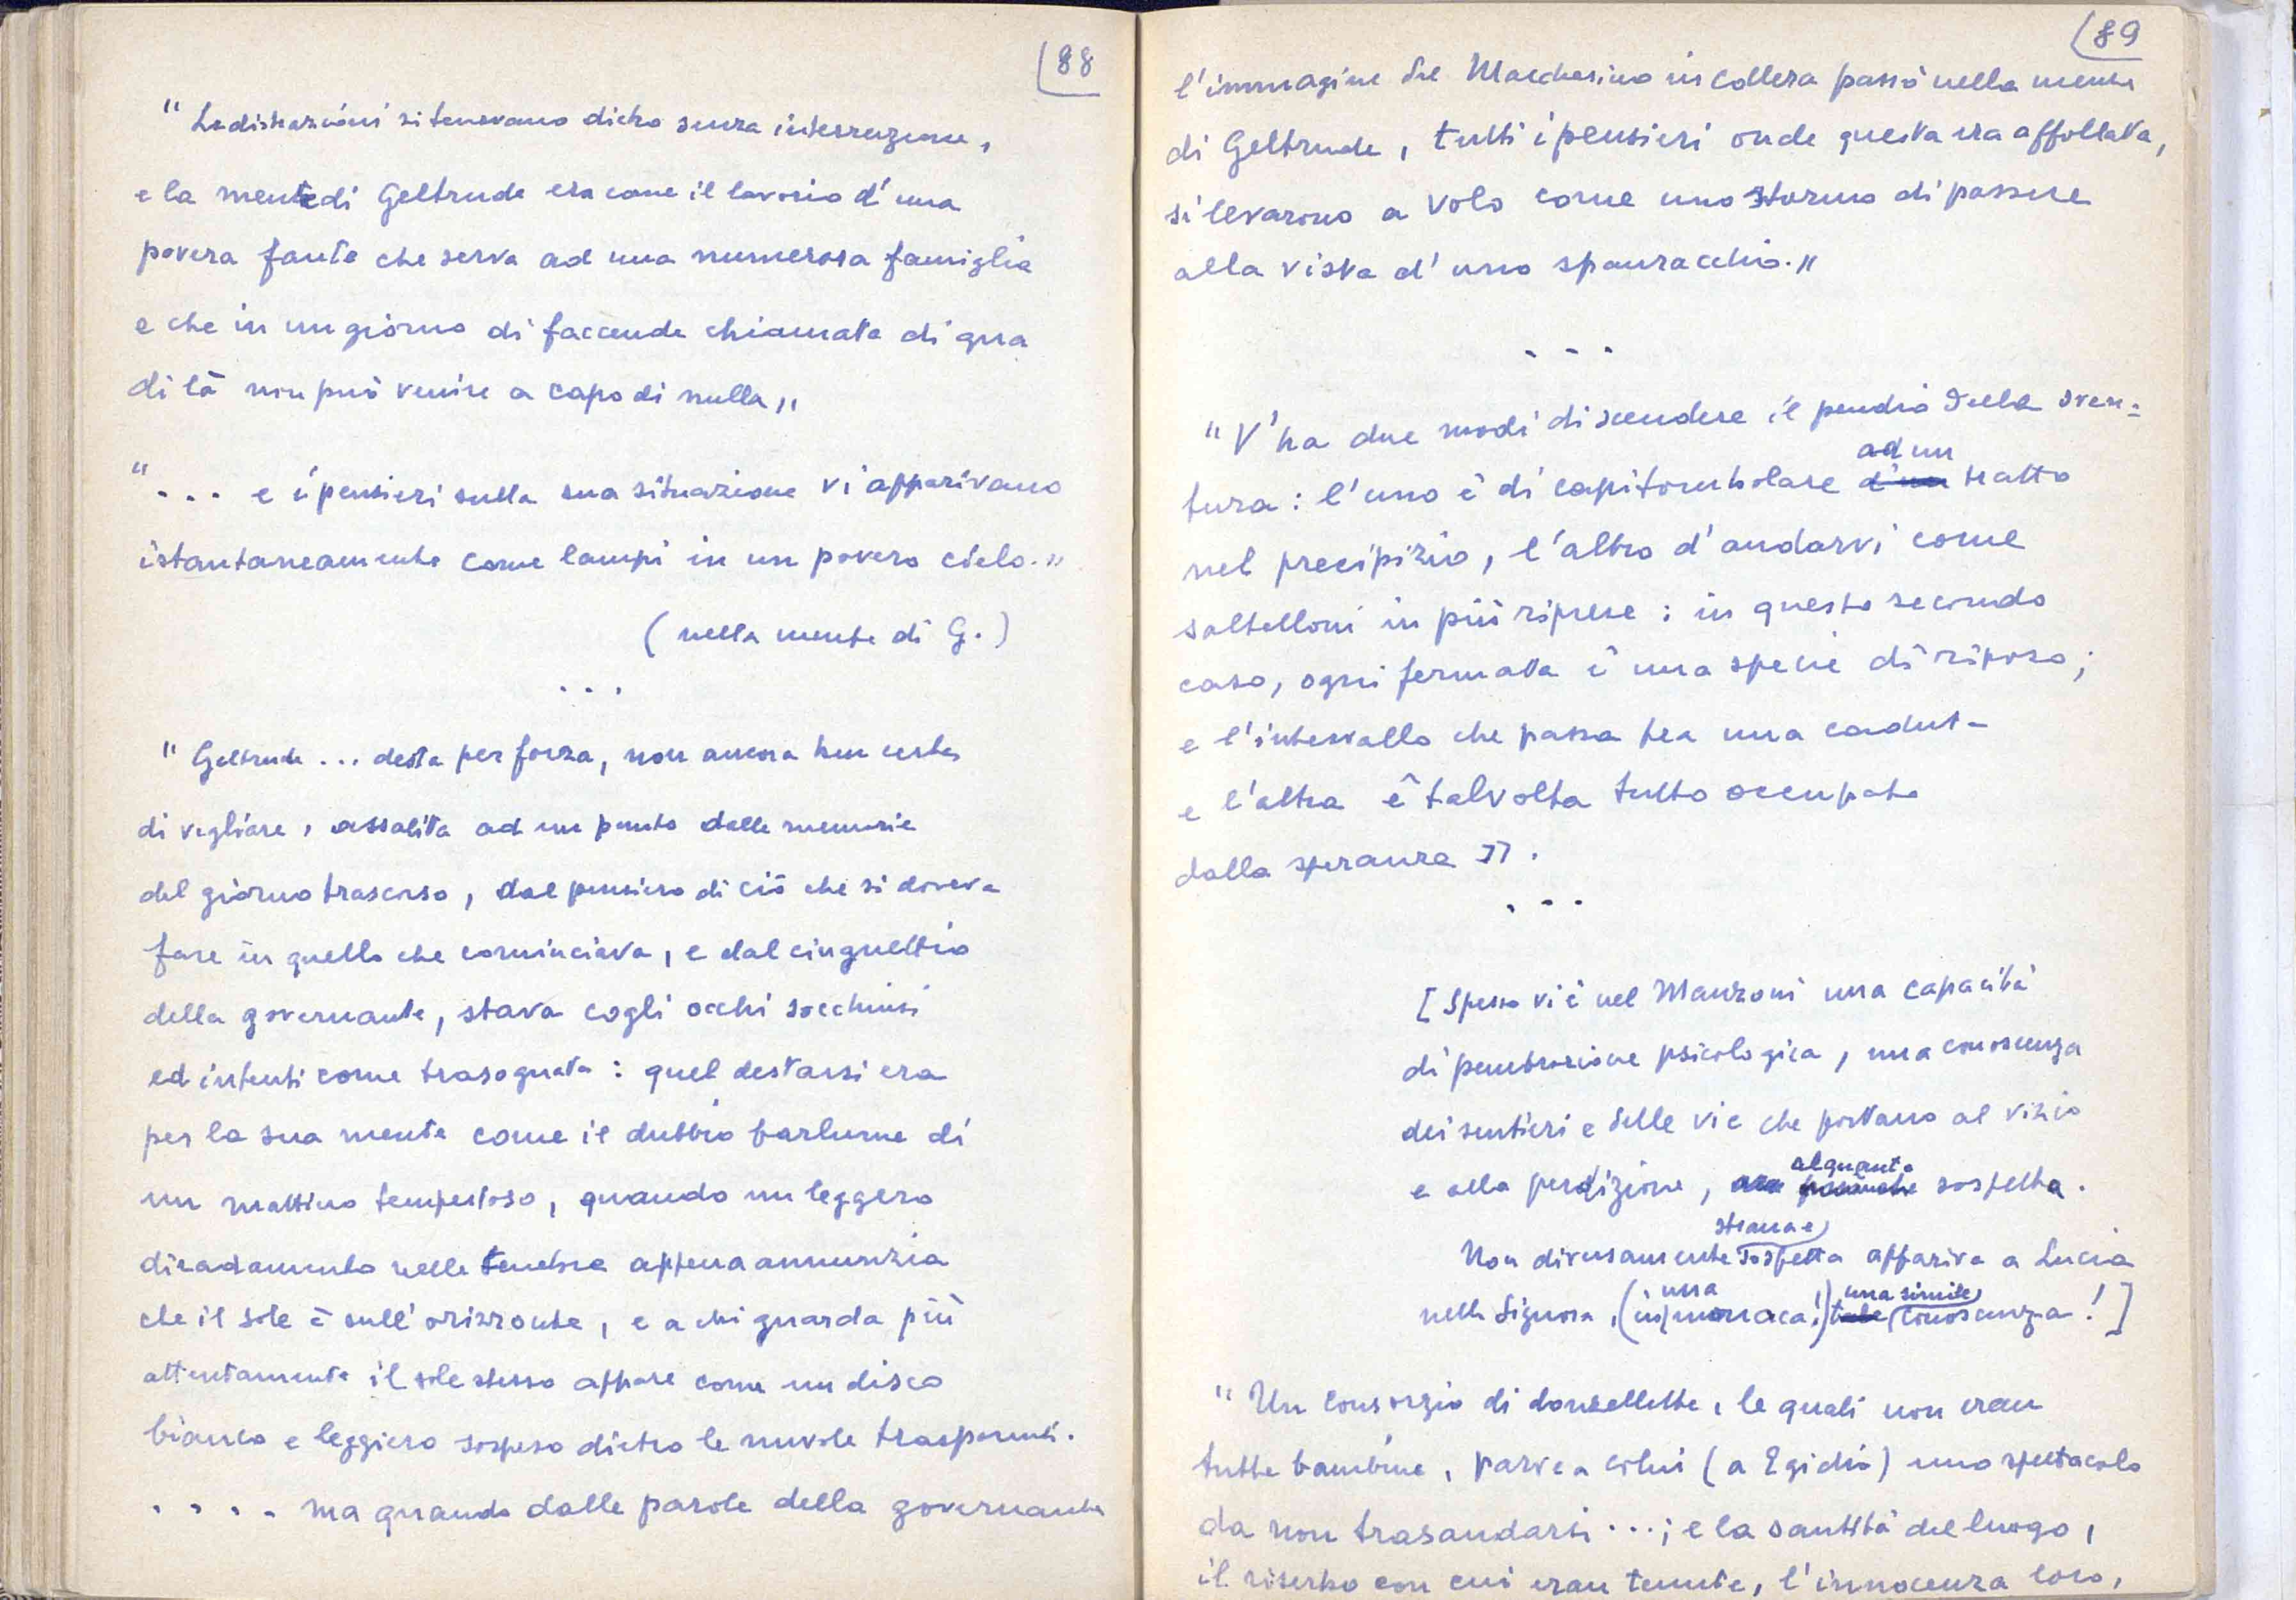 88
" Le distrazioni si tenevano dietro senza interruzione,
e la mente di Geltrude era come il lavorio d'una
povera fante che serva ad una numerosa famiglia
e che in un giorno di faccende chiamata di qua
di là non può venire a capo di nulla "
" ... e i pensieri sulla sua situazione vi apparivano
istantaneamente come lampi in un povero cielo. "
( nella mente di G. )
. . .
" Geltrude ... desta per forza, non ancora ben certa
di vegliare, assalita ad un punto dalle memorie
del giorno trascorso, dal pensiero di ciò che si doveva
fare in quello che cominciava, e dal cinguettio
della governante, stava cogli occhi socchiusi
ed intenti come trasognata : quel destarsi era
per la sua mente come il dubbio barlume di
un mattino tempestoso, quando un leggero
diradamento nelle tenebre appena annunzia
che il sole è sull'orizzonte, e a chi guarda più
attentamente il sole stesso appare come un disco
bianco e leggiero sospeso dietro le nuvole trasparenti.
. . . . ma quando dalle parole della governante
89
l'immagine del Marchesino in collera passò nella mente
di Geltrude, tutti i pensieri onde questa era affollata,
si levarono a volo come uno stormo di passere
alla vista d'uno spauracchio. "
- - -
" V'ha due modi di scendere il pendio della sven=
ad un
tura : l'uno è di capitombolare d'un tratto
nel precipizio, l'altro d'andarvi come
saltelloni in più riprese : in questo secondo
caso, ogni fermata è una specie di riposo ;
e l'intervallo che passa fra una caduta
e l'altra è talvolta tutto occupato
dalla speranza ".
. - -
[ Spesso vi è nel Manzoni una capacità
di penetrazione psicologica, una conoscenza
dei sentieri e delle vie che portano al vizio
alquanto
e alla perdizione, sospetta.
strana e
Non diversamente sospetta appariva a Lucia
una una simile
nella Signora, (in monaca!) tale conoscenza ! ]
" Un consorzio di donzellette, le quali non eran
tutte bambine, parve a colui (a Egidio) uno spettacolo
da non trasandarsi ... ; e la santità del luogo,
il riserbo con cui eran tenute, l'innocenza loro,